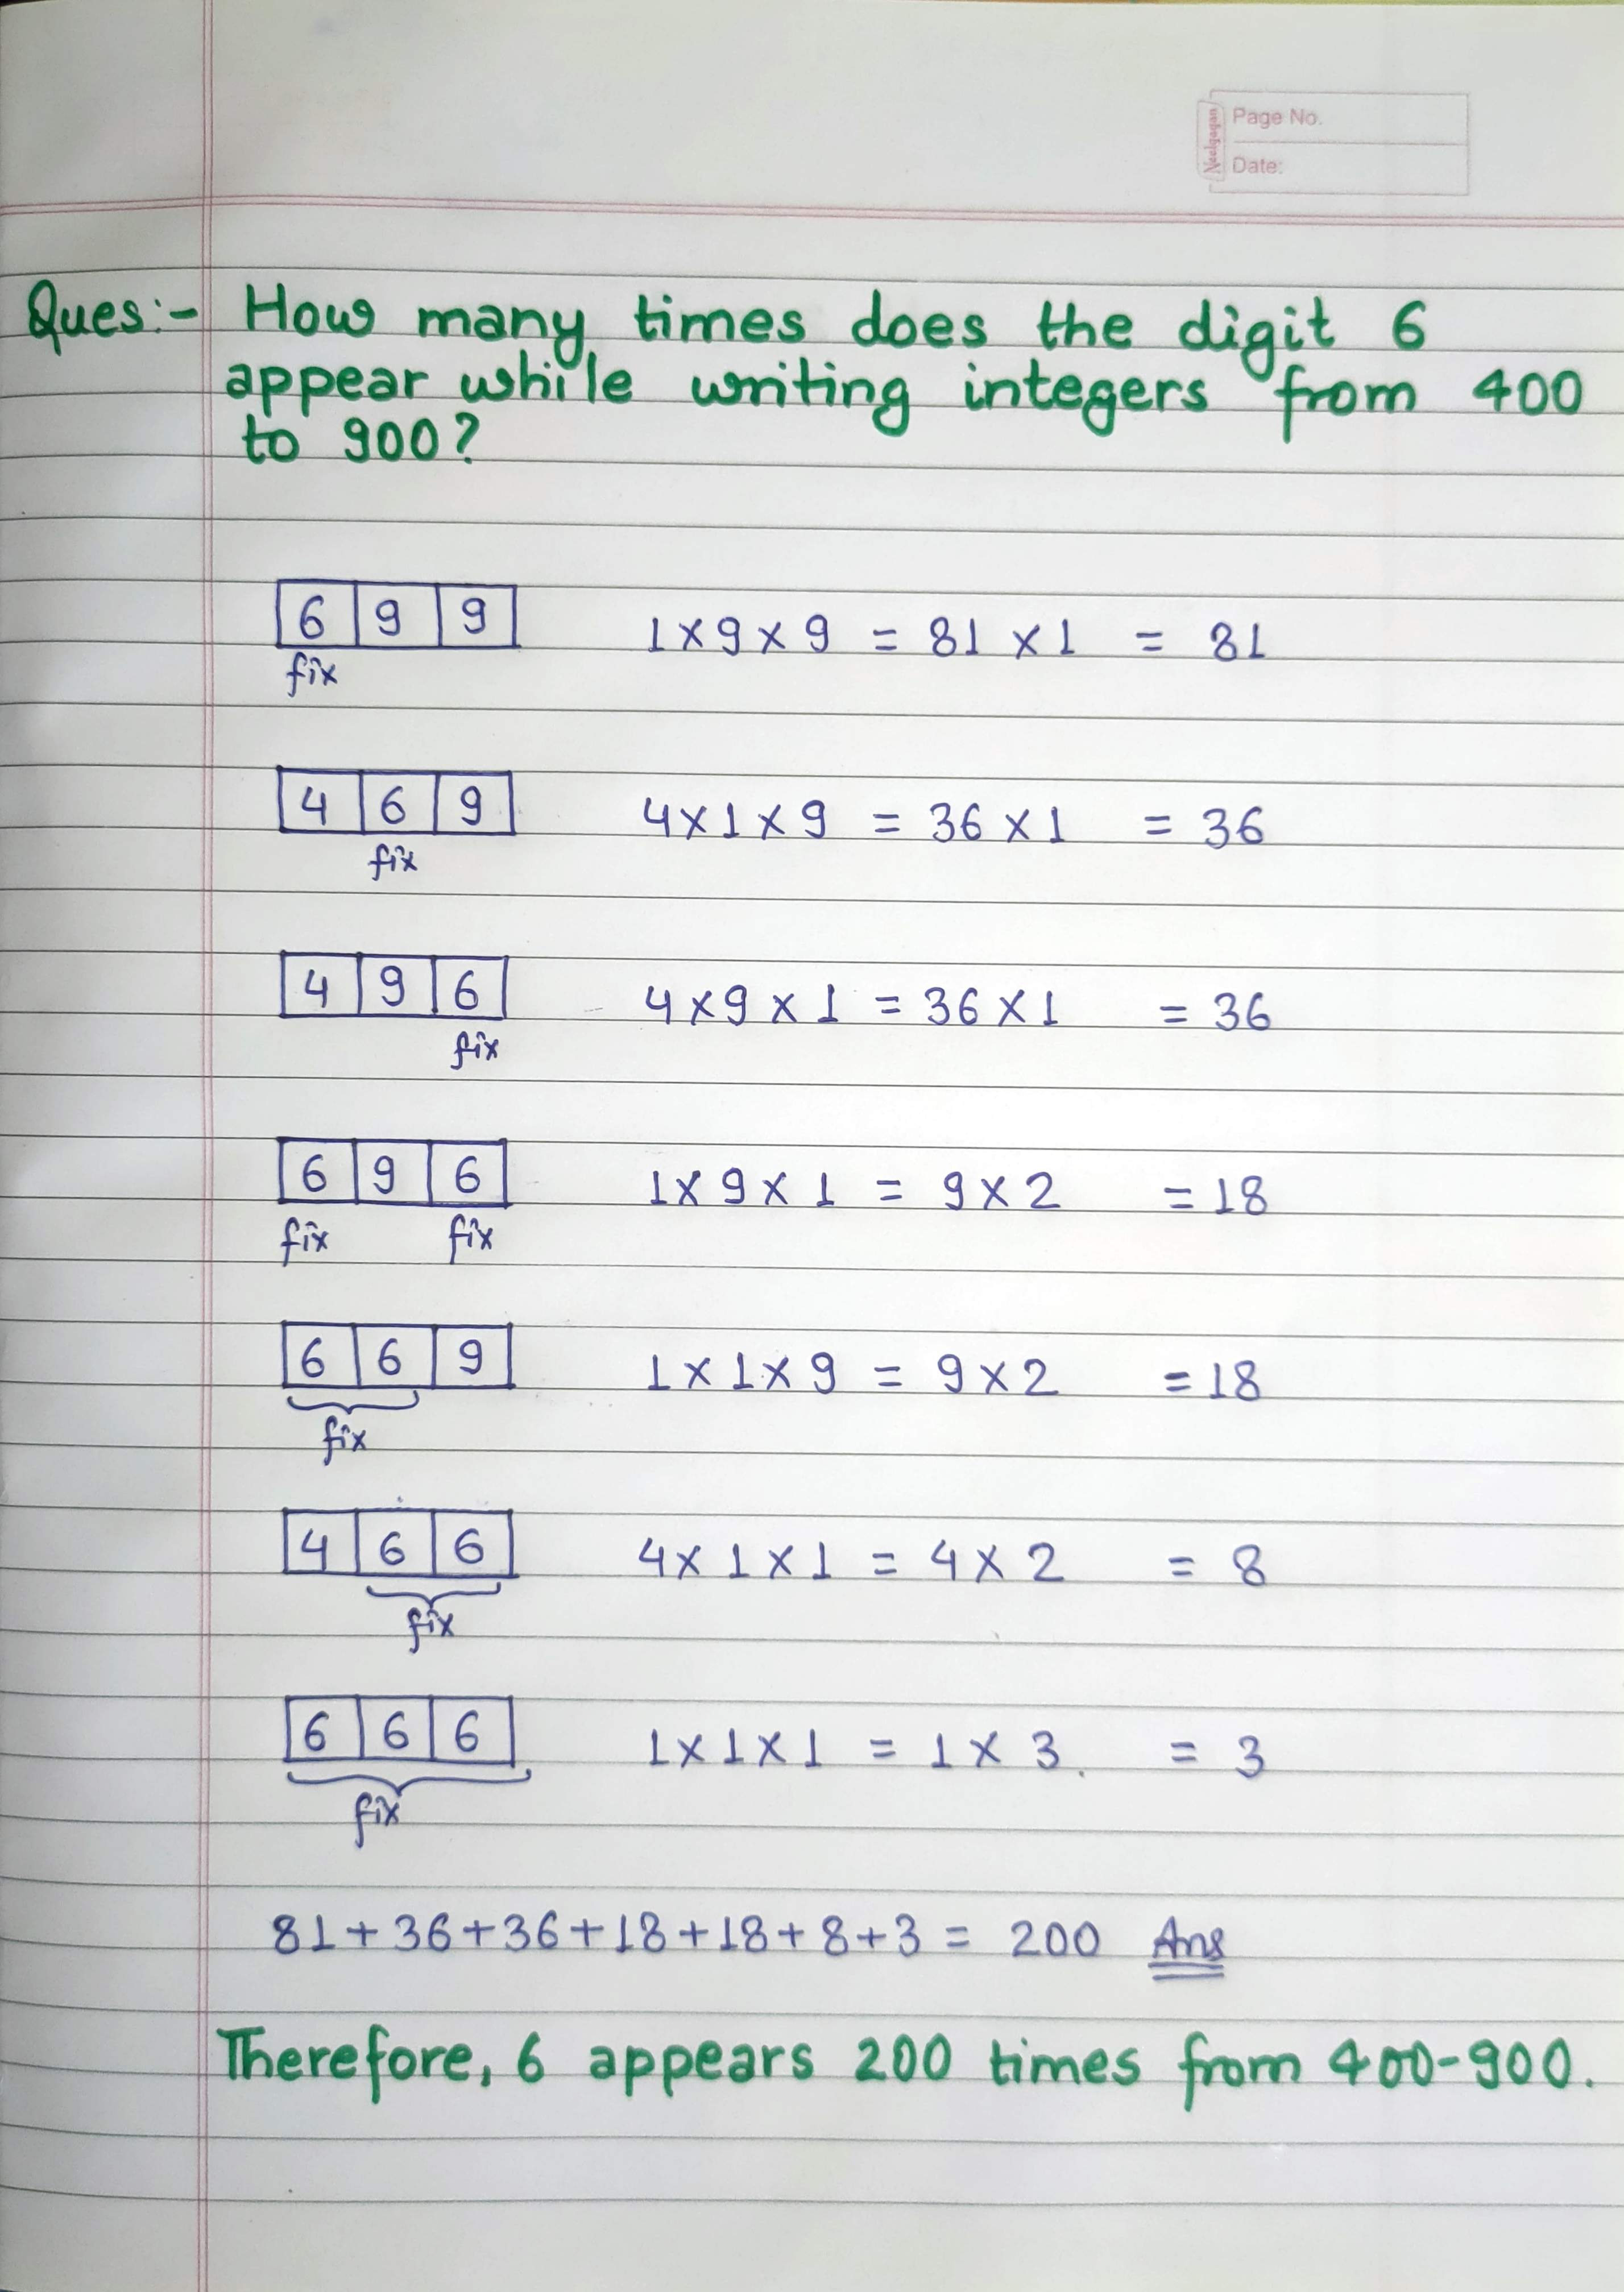 Neelgagan
Page No.
Date:
Ques:- How many times does the digit 6
appear while writing integers from 400
to 900?
6 9 9 1×9×9 = 81×1 = 81
fix
4 6 9 4×1×9 = 36×1 = 36
fix
4 9 6 4×9×1 = 36×1 = 36
fix
6 9 6 1×9×1 = 9×2 = 18
fix fix
6 6 9 1×1×9 = 9×2 = 18
fix
4 6 6 4×1×1 = 4×2 = 8
fix
6 6 6 1×1×1 = 1×3. = 3
fix
81+36+36+18+18+8+3 = 200 Ans
Therefore, 6 appears 200 times from 400-900.